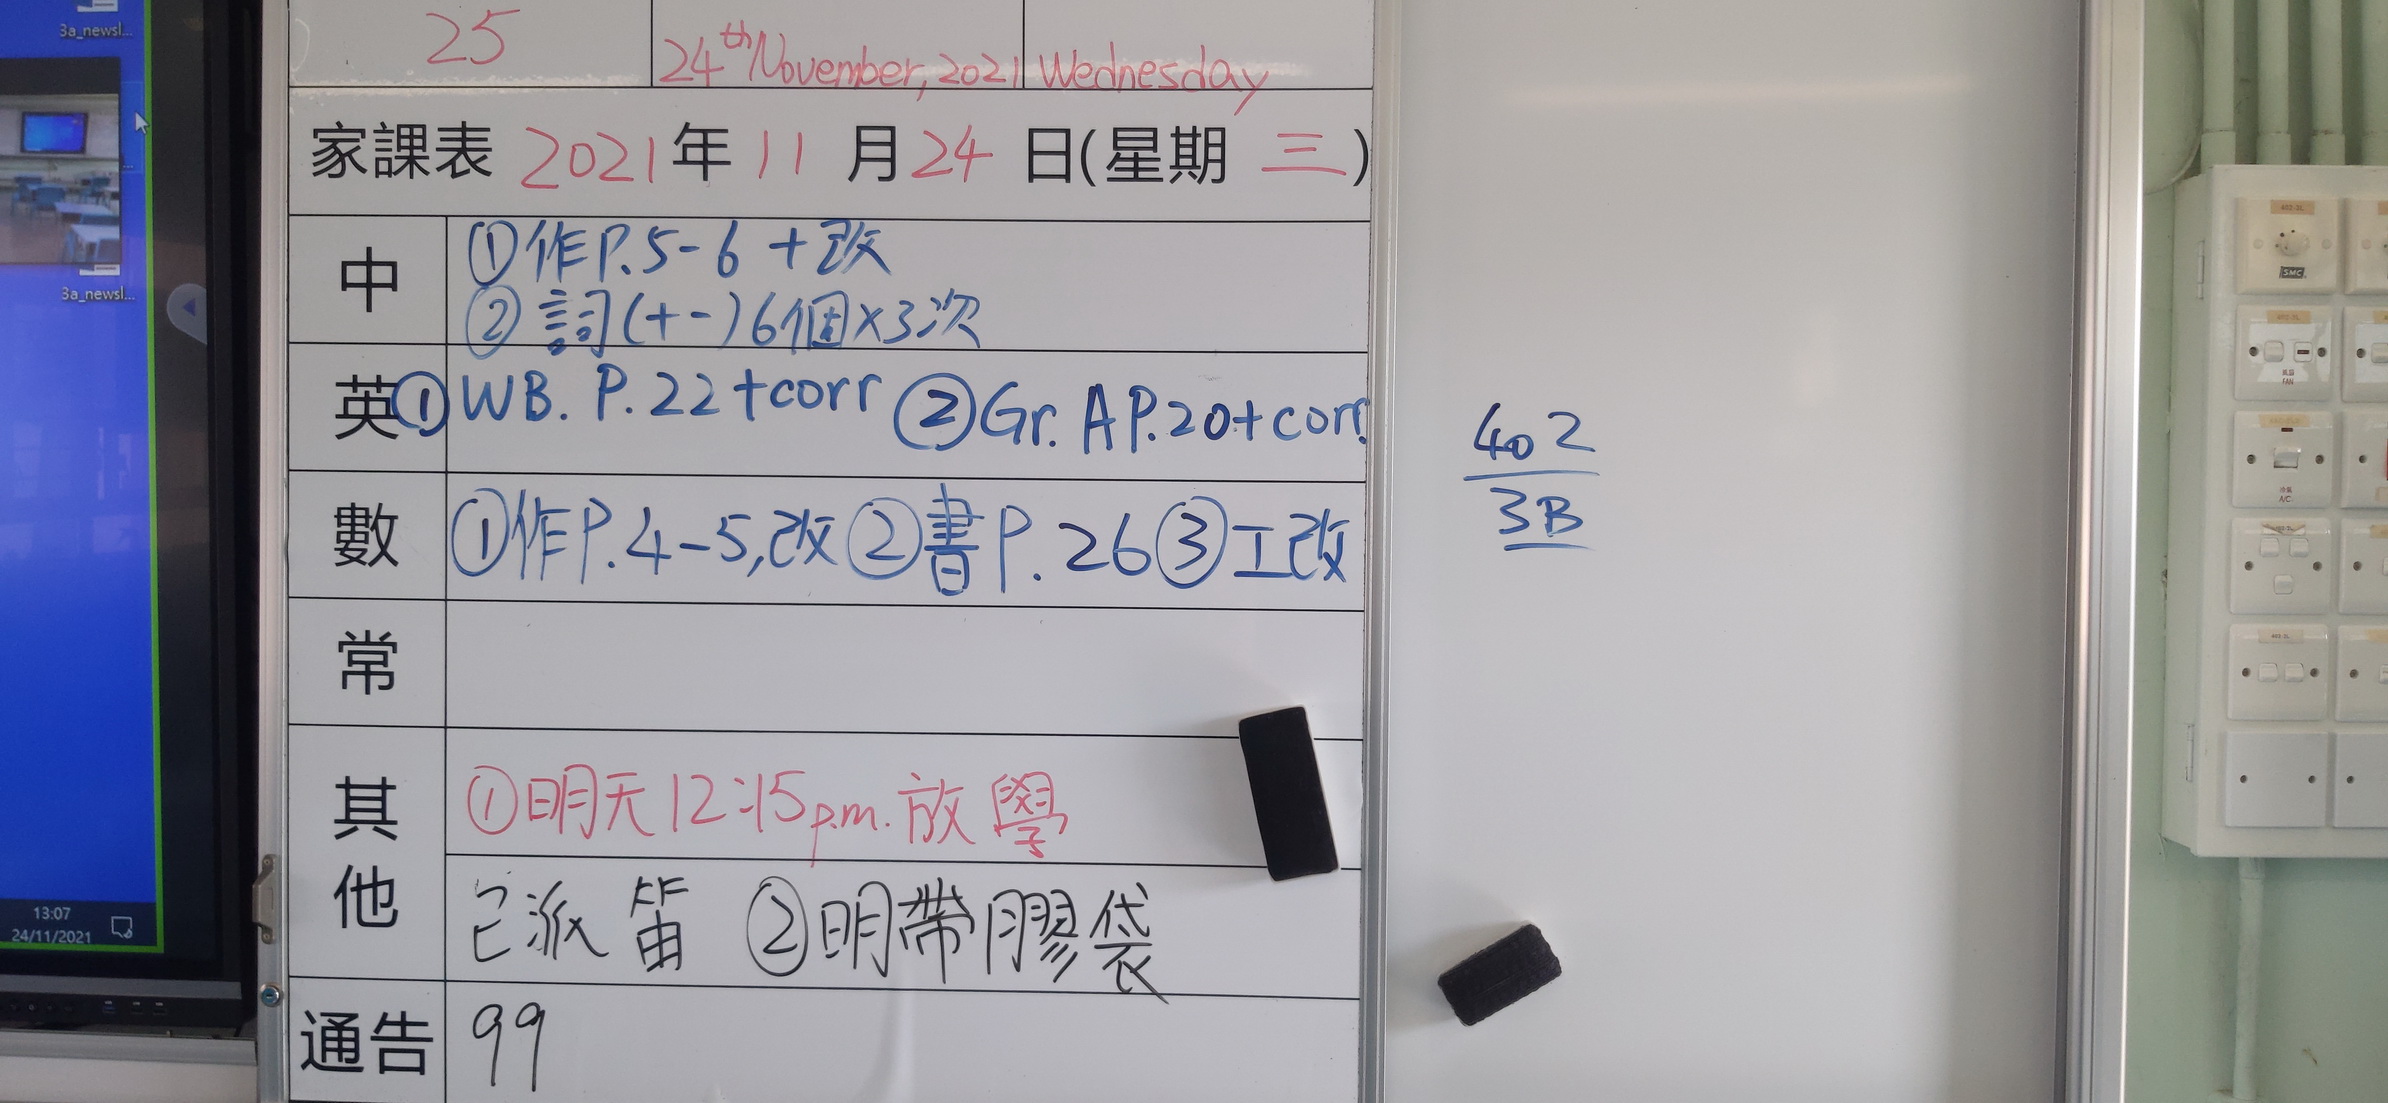 3a_newsl...
3a_newsl...
13:07
24/11/2021
25
24th November, 2021 Wednesday
家課表 2021年11月24日(星期三)
中
①作P.5-6+改
②詞(十一)6個×3次
英
①WB. P.22+corr ②Gr. A P.20+corr.
數
①作P.4-5,改②書P.26③工改
常
其他
①明天12:15p.m.放學
已派笛 ②明帶膠袋
通告
99
402
3B
SMC
FAN
A/C